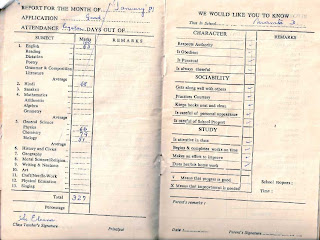 REPORT FOR THE MONTH OF January
APPLICATION Good
ATTENDANCE DAYS OUT OF
SUBJECT Marks REMARKS
1. English
Reading
Dictation
Poetry
Grammar & Composition
Literature
Average
2. Hindi
3. Sanskrit
4. Mathematics
Arithmetic
Algebra
Geometry
Average
5. General Science
Physics
Chemistry
Biology
Average
6. History and Civics
7. Geography
8. Moral Science/Religion
9. Writing & Neatness
10. Art
11. Craft/Needle-Work
12. Physical Education
13. Singing
Total 327
Percentage
Class Teacher's Signature Principal
WE WOULD LIKE YOU TO KNOW
That in School
CHARACTER REMARKS
Respects Authority
Is Obedient
Is Punctual
Is always Honest
SOCIABILITY
Gets along well with others
Practises Courtesy
Keeps books neat and clean
Is careful of personal appearance
Is careful of School Property
STUDY
Is attentive in class
Begins & completes works on time
Makes an effort to improve
Does his/her home work
X Means that improvement is needed
School Reopens :
Time :
Parent's remarks :
Date Parent's Signature